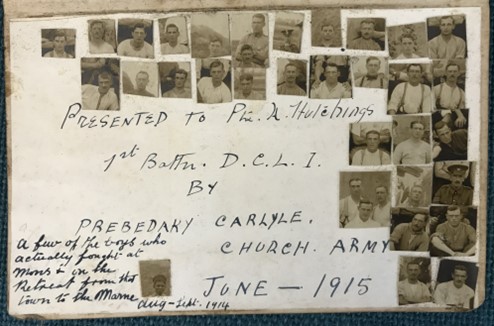 PRESENTED TO Pte. A. Hutchings
1st Battn. D.C.L.I.
BY
PREBEDARY CARLYLE.
CHURCH. ARMY
JUNE — 1915
A few of the boys who
actually fought at
Mons & in the
Retreat from that
town to the Marne
Aug-Sept. 1914